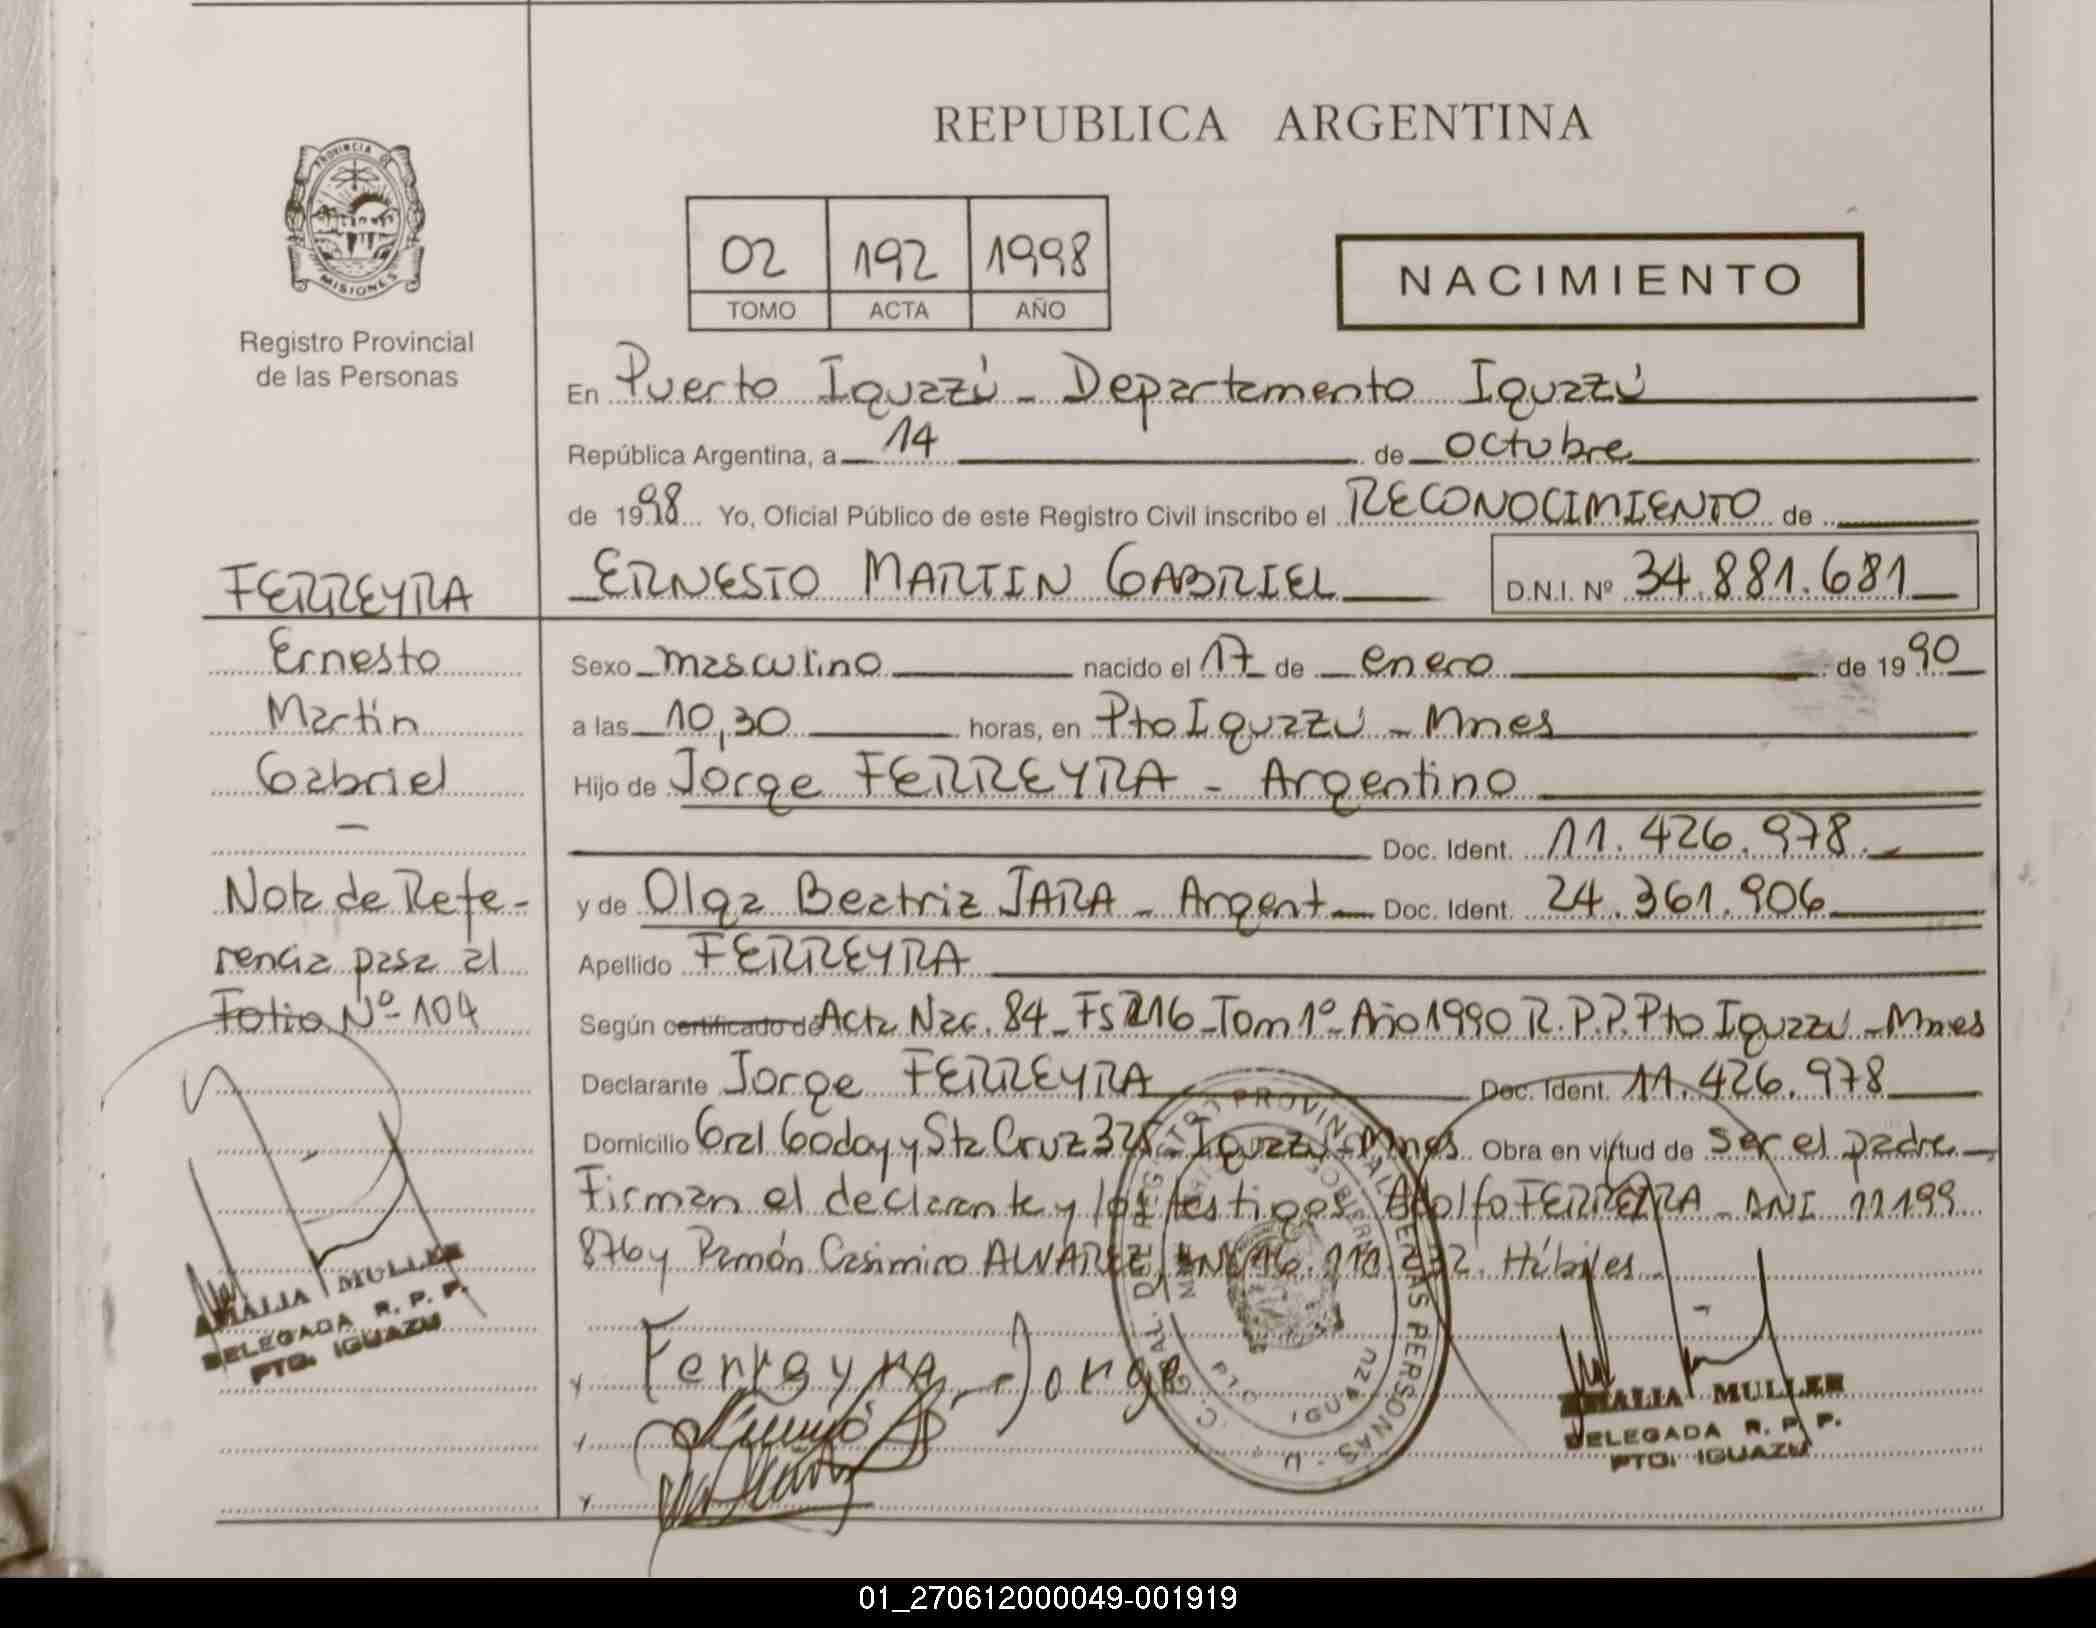 REPUBLICA ARGENTINA
PROVINCIA DE
MISIONES
Registro Provincial
de las Personas
02 192 1998
TOMO ACTA AÑO
NACIMIENTO
En Puerto Iguazú - Departamento Iguazú
República Argentina, a 14 de octubre
de 1998 Yo, Oficial Público de este Registro Civil inscribo el RECONOCIMIENTO de
ERNESTO MARTIN GABRIEL D.N.I. Nº 34.881.681
FERREYRA
Ernesto
Martín
Gabriel
-
Nota de Refe-
rencia pasa al
Folio Nº 104
Sexo masculino nacido el 17 de enero de 1990
a las 10,30 horas, en Pto Iguazú - Mnes
Hijo de Jorge FERREYRA - Argentino
Doc. Ident. 11.426.978.
y de Olga Beatriz JARA - Argent Doc. Ident. 24.361.906
Apellido FERREYRA
Según certificado de Acta Nac. 84 - Fs 216 - Tom 1º - Año 1990 R.P.P. Pto Iguazú - Mnes
Declarante Jorge FERREYRA Doc. Ident. 11.426.978
Domicilio Gral Godoy y Sta Cruz Iguazú - Mnes. Obra en virtud de ser el padre -
Firman el declarante y los testigos Adolfo FERREYRA - DNI 11199
876 y Ramón Casimiro ALVAREZ, DNI 16. Hábiles.
Ferreyra Jorge
REGISTRO PROVINCIAL DE LAS PERSONAS
PTO IGUAZU
AMALIA MULLER
DELEGADA R. P. P.
PTO. IGUAZU
AMALIA MULLER
DELEGADA R. P. P.
PTO. IGUAZU
01_270612000049-001919